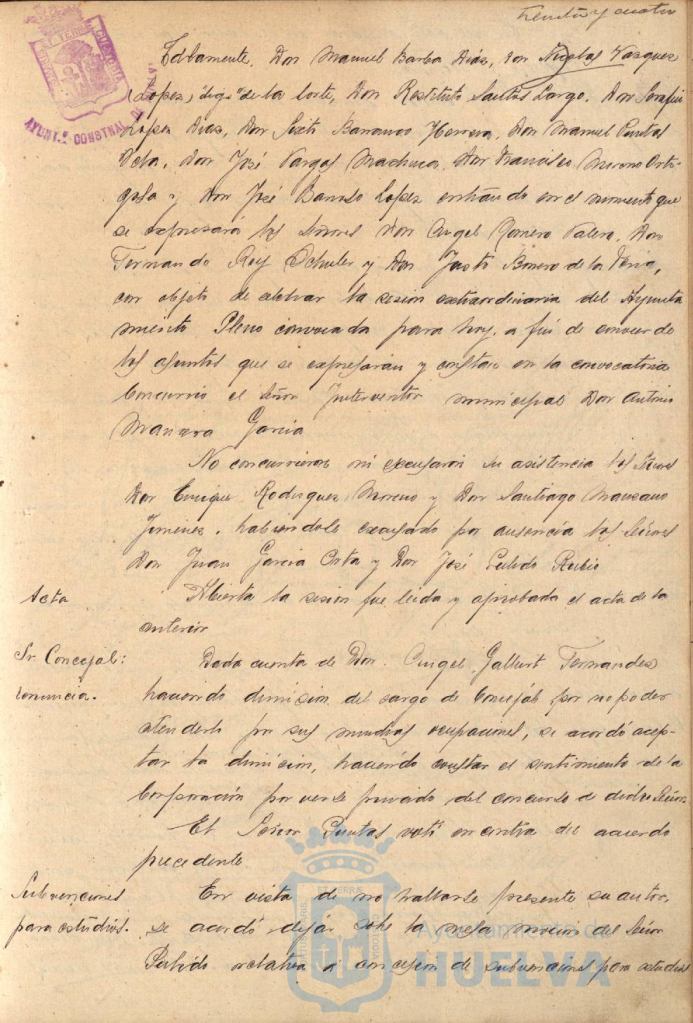 treinta y cuatro
AYUNT.º CONSTNAL
Don Manuel Barba Díaz, Don Nicolas Vazquez
Lopez, de la Corte, Don Restituto Santos Largo, Don Serafin
Lopez Diaz, Don Sixto Barranco Herrera, Don Manuel Puntas
Vela, Don José Vargas Machuca, Don Francisco Moreno Orti-
gosa y Don José Barroso Lopez entrando en el momento que
se expresará los Señores Don Angel Romero Valero, Don
Fernando Rey y Don Justo Borrero de la
con objeto de celebrar la sesion extraordinaria del Ayunta
miento Pleno convocada para hoy, a fin de conocer de
los asuntos que se expresaran y constan en la convocatoria
Concurrió el Señor Interventor municipal Don Antonio
Garcia
No concurrieron ni excusaron su asistencia los Señores
Don Enrique Rodriguez Moreno y Don Santiago Manzano
Jimenez, habiendolo excusado por ausencia los Señores
Don Juan Garcia Orta y Don José Pulido Rubio
Acta
Abierta la sesion fue leida y aprobada el acta de la
anterior
Sr. Concejal:
renuncia.
Dada cuenta de Don Angel Fernandez
haciendo dimision del cargo de Concejal por no poder
atenderlo por sus muchas ocupaciones, se acordó acep-
tar la dimision, haciendo constar el sentimiento de la
Corporación por verse privado del concurso de dicho Señor.
El Señor Puntas votó en contra del acuerdo
precedente
Subvenciones
para estudios.
En vista de no hallarse presente su autor,
se acordó dejar sobre la mesa mocion del Señor
Pulido relativa a concesion de subvenciones para estudios
Ayuntamiento de
HUELVA